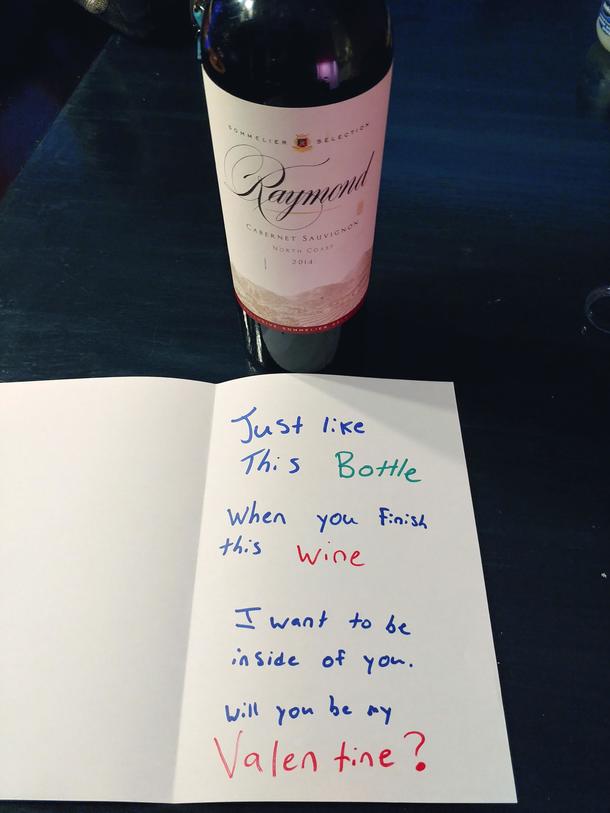 SOMMELIER SELECTION
Raymond
CABERNET SAUVIGNON
NORTH COAST
2014
Just like
This Bottle
When you Finish
this wine
I want to be
inside of you.
Will you be my
Valentine?